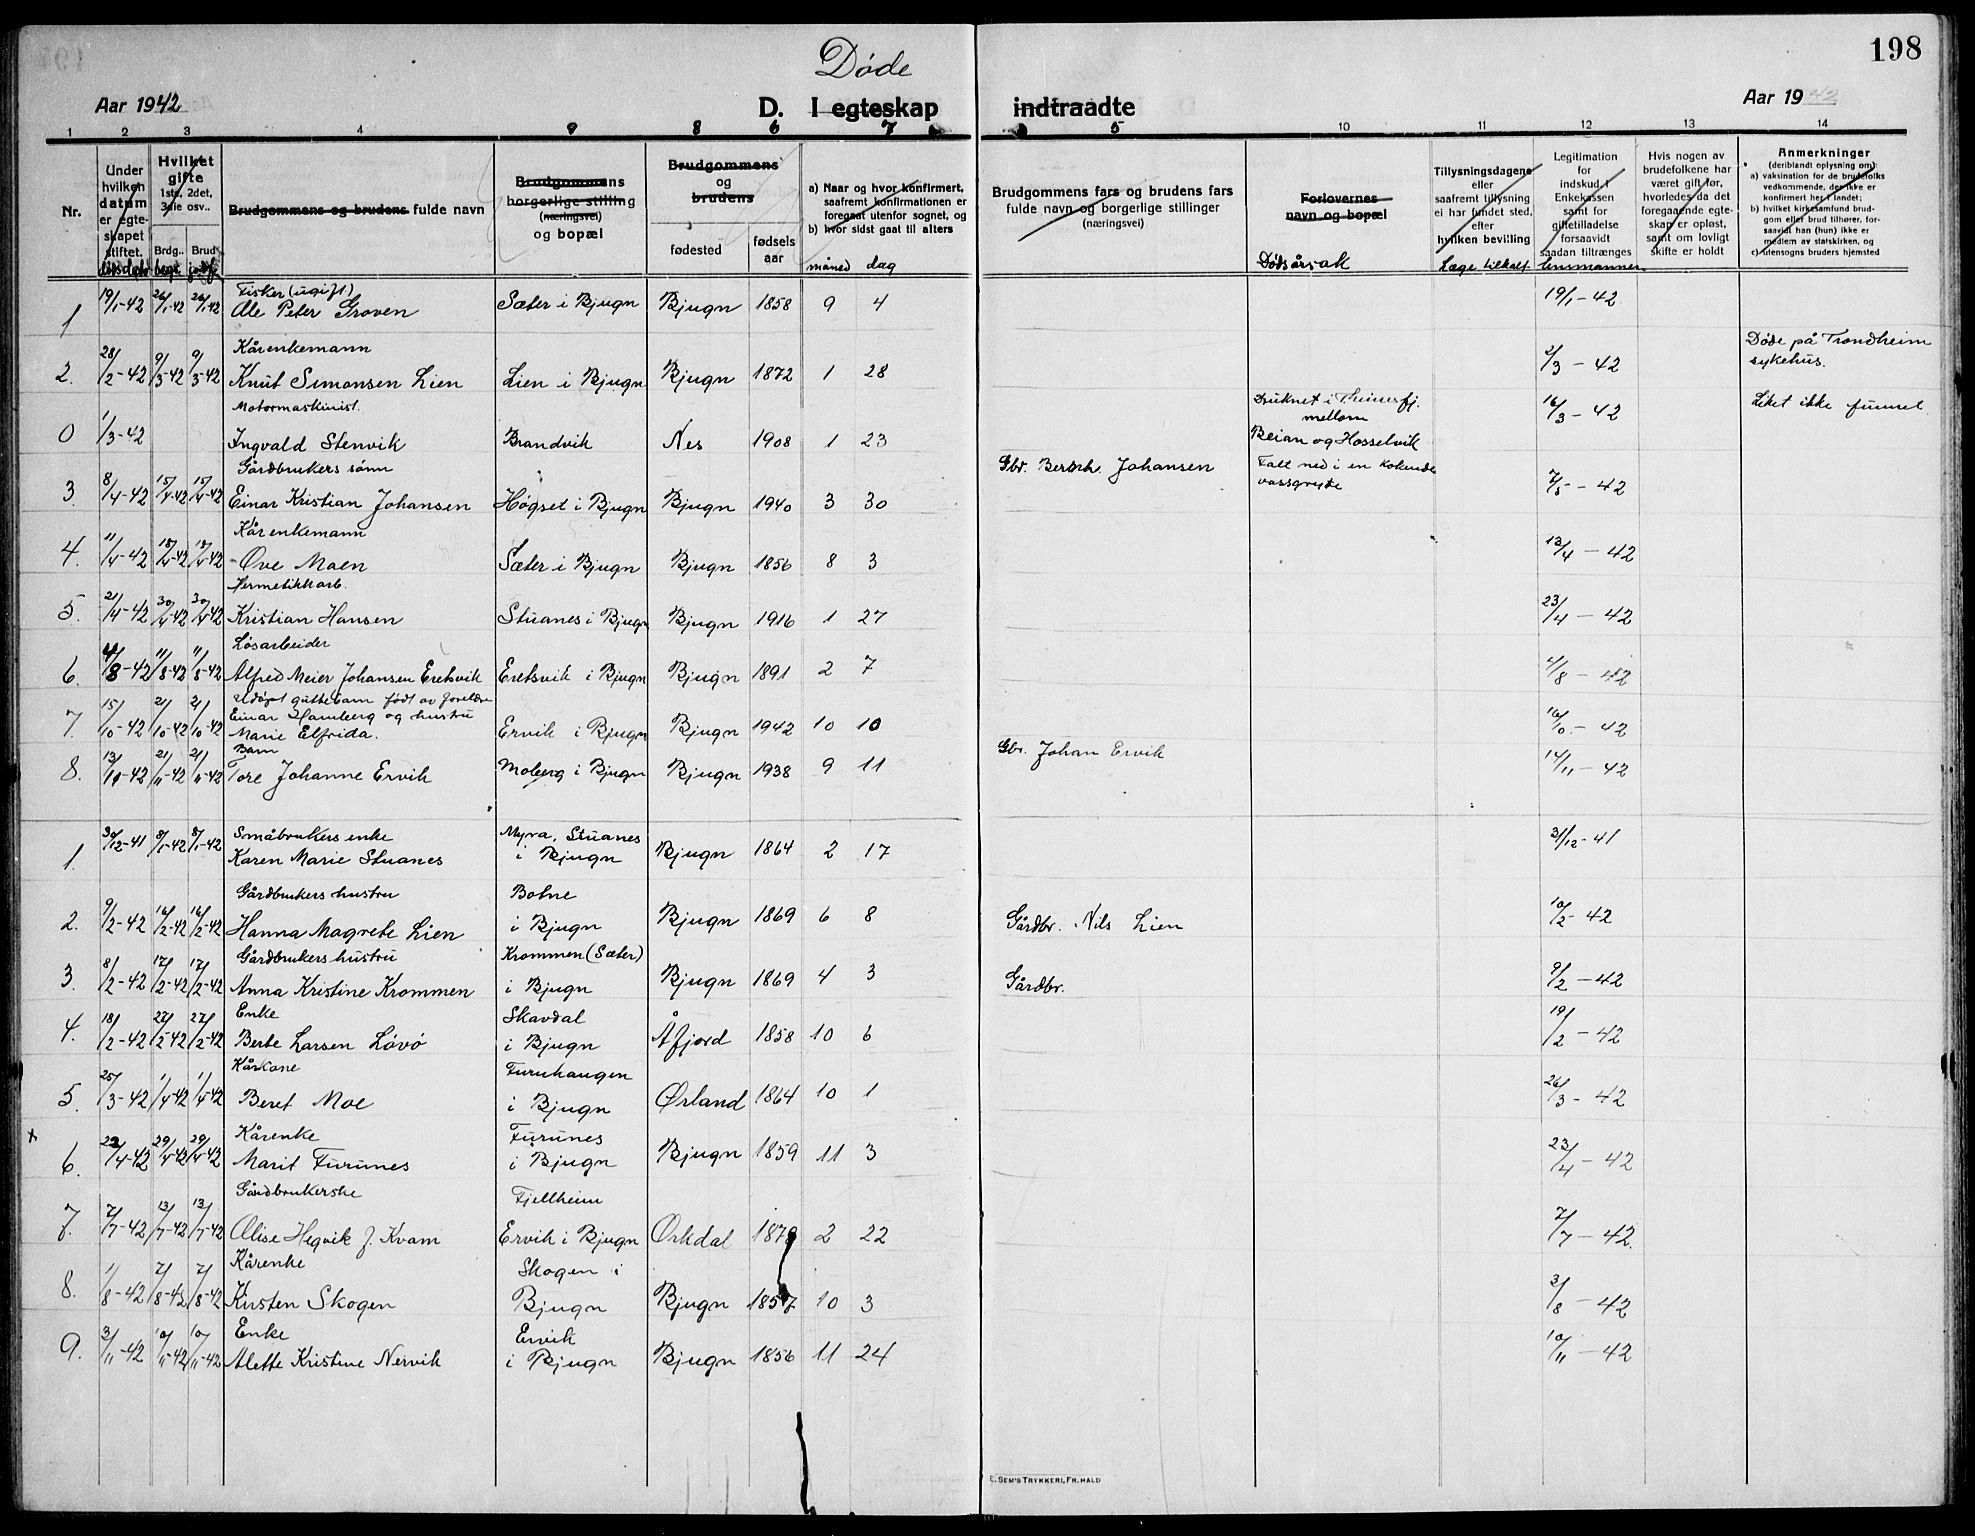 Døde
198
Aar 1942
D. I egteskap indtraadte
Aar 1942
1 2 3 4 9 8 6 7 5 10 11 12 13 14
Nr.
Under hvilken datum er egteskapet stiftet.
Hvilket gifte 1ste, 2det, 3die osv..
Brdg. Brud
Brudgommens og brudens fulde navn
Brudgommens borgerlige stilling (næringsvei) og bopæl
Brudgommens og brudens
fødested
fødsels aar
a) Naar og hvor konfirmert, saafremt konfirmationen er foregaat utenfor sognet, og
b) hvor sidst gaat til alters
måned dag
Brudgommens fars og brudens fars fulde navn og borgerlige stillinger (næringsvei)
Forlovernes navn og bopæl
Dødsårsak
Tillysningsdagene eller saafremt tillysning ei har fundet sted, efter hvilken bevilling
Læge tilkalt
Legitimation for indskud i Enkekassen samt for giftetilladelse forsaavidt saadan tiltrænges
lensmannen
Hvis nogen av brudefolkene har været gift før, hvorledes da det foregaaende egteskap er opløst, samt om lovligt skifte er holdt
Anmerkninger (deriblandt oplysning om):
a) vaksination for de brudefolks vedkommende, der ikke er konfirmert her i landet;
b) hvilket kirkesamfund brudgom eller brud tilhører, forsaavidt han (hun) ikke er medlem av statskirken, og
c) utensogns bruders hjemsted
1 19/1-42 26/1-42 26/1-42 Fisker (ugift) Ole Peter Groven Sæter i Bjugn Bjugn 1858 9 4 19/1-42
2. 28/2-42 9/3-42 9/3-42 Kårenkemann Knut Simonsen Lien Lien i Bjugn Bjugn 1872 1 28 2/3-42 Døde på Trondheim sykehus.
0 1/3-42 Motormaskinist. Ingvald Stenvik Brandvik Nes 1908 1 23 Druknet i mellom Beian og Hosselvik 16/3-42 Liket ikke funnet
3 8/4-42 15/4-42 15/4-42 Gårdbrukers sønn Einar Kristian Johansen Høgset i Bjugn Bjugn 1940 3 30 Gbr. Bernh. Johansen Falt ned i en kokende vassgryte 7/5-42
4. 11/4-42 18/4-42 18/4-42 Kårenkemann Ove Moen Sæter i Bjugn Bjugn 1856 8 3 13/4-42
5. 21/4-42 30/4-42 30/4-42 Hermetikkarb. Kristian Hansen Stuanes i Bjugn Bjugn 1916 1 27 23/4-42
6. 4/8-42 11/8-42 11/8-42 Løsarbeider Alfred Meier Johansen Eretsvik Eretsvik i Bjugn Bjugn 1891 2 7 4/8-42
7. 15/10-42 21/10-42 21/10-42 Udøpt guttebarn født av foreldre Einar Hamberg og hustru Marie Elfrida. Ervik i Bjugn Bjugn 1942 10 10 16/10-42
8. 13/11-42 21/11-42 21/11-42 Barn Tore Johanne Ervik Moberg i Bjugn Bjugn 1938 9 11 Gbr. Johan Ervik 14/11-42
1. 30/12-41 8/1-42 8/1-42 Småbrukers enke Karen Marie Stuanes Myra, Stuanes i Bjugn Bjugn 1864 2 17 31/12-41
2. 9/2-42 16/2-42 16/2-42 Gårdbrukers hustru Hanna Magrete Lien Botne i Bjugn Bjugn 1869 6 8 Gårdbr. Nils Lien 10/2-42
3. 8/2-42 17/2-42 17/2-42 Gårdbrukers hustru Anna Kristine Krommen Krommen (Sæter) i Bjugn Bjugn 1869 4 3 Gårdbr. 9/2-42
4. 18/2-42 27/2-42 27/2-42 Enke Berte Larsen Løvø Skavdal i Bjugn Åfjord 1858 10 6 19/2-42
5. 25/3-42 1/4-42 1/4-42 Kårkone Beret Moe Furuhaugen i Bjugn Ørland 1864 10 1 26/3-42
x 6. 22/4-42 29/4-42 29/4-42 Kårenke Marit Furunes Furunes i Bjugn Bjugn 1859 11 3 23/4-42
7. 7/7-42 13/7-42 13/7-42 Gårdbrukerske Olise Hegvik f. Kvam Fjellheim Ervik i Bjugn Orkdal 1879 2 22 7/7-42.
8. 1/8-42 7/8-42 7/8-42 Kårenke Kirsten Skogen Skogen i Bjugn Bjugn 1857 10 3 3/8-42
9. 3/11-42 10/11-42 10/11-42 Enke Alette Kristine Nervik Ervik i Bjugn Bjugn 1856 11 24 10/11-42
E. SEM'S TRYKKERI, FR. HALD